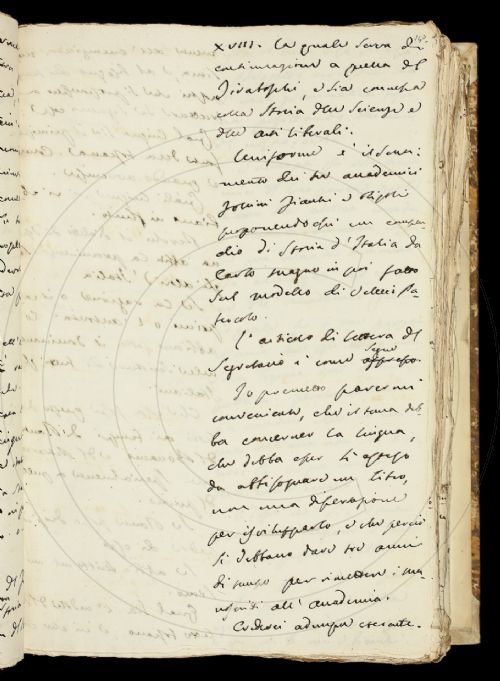 XVIII. la quale serva di
continuazione a quella del
Tiraboschi, o sia connessa
colla Storia delle Scienze e
delle arti liberali.
Uniforme è il senti-
mento dei tre accademici
e
proponendosi un compen-
dio di Storia d'Italia da
Carlo magno in poi fatto
sul modello di Vellejo Pa-
tercolo.
L'articolo di lettera del
Segretario è come segue
Io premetto parermi
conveniente, che il tema deb-
ba concernere la lingua,
che debba esser tale
da abbisognare un libro,
non una dissertazione
per isvilupparlo, e che perciò
si debbano dare tre anni
di tempo per rimettere i ma-
noscritti all'accademia.
Crederei adunque